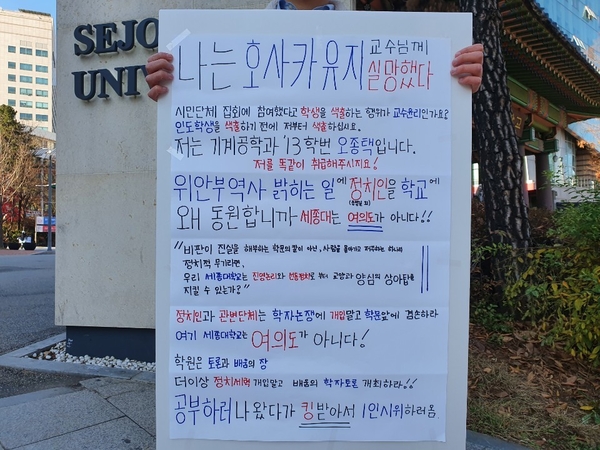 SEJO
UNIV
나는 호사카 유지 교수님께
실망했다
시민단체 집회에 참여했다고 학생을 색출하는 행위가 교수윤리인가요?
인도학생을 색출하기 전에 저부터 색출하십시오.
저는 기계공학과 '13학번 오종택입니다.
저를 똑같이 취급해주시지요!
위안부역사 밝히는 일에 정치인을 학교에
왜 동원합니까 세종대는 여의도가 아니다!!
"비판이 진실을 해부하는 학문의 칼이 아닌, 사람을 몰아가고 저주하는 하나의
정치적 무기라면,
우리 세종대학교는 진영논리와 선동정치로 부터 교양과 양심의 상아탑을
지킬 수 있는가?"
정치인과 관변단체는 학자논장에 개입말고 학문앞에 겸손하라
여기 세종대학교는 여의도가 아니다!
학원은 토론과 배움의 장
더이상 정치세력 개입말고 배움의 학자토론 개최하라!!
공부하러 나왔다가 킹받아서 1인시위하러옴